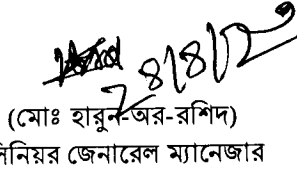 (মোঃ হারুন-অর-রশিদ)
নিয়র জেনারেল ম্যানেজার